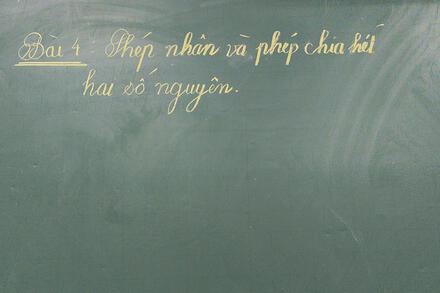 Bài 4 : Phép nhân và phép chia hết
hai số nguyên.